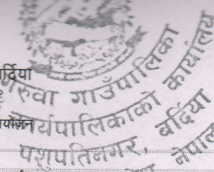 र्दिया
रुवा गाउँपालिका
कार्यपालिकाको कार्यालय
योजना
पशुपतिनगर, बर्दिया
नेपाल